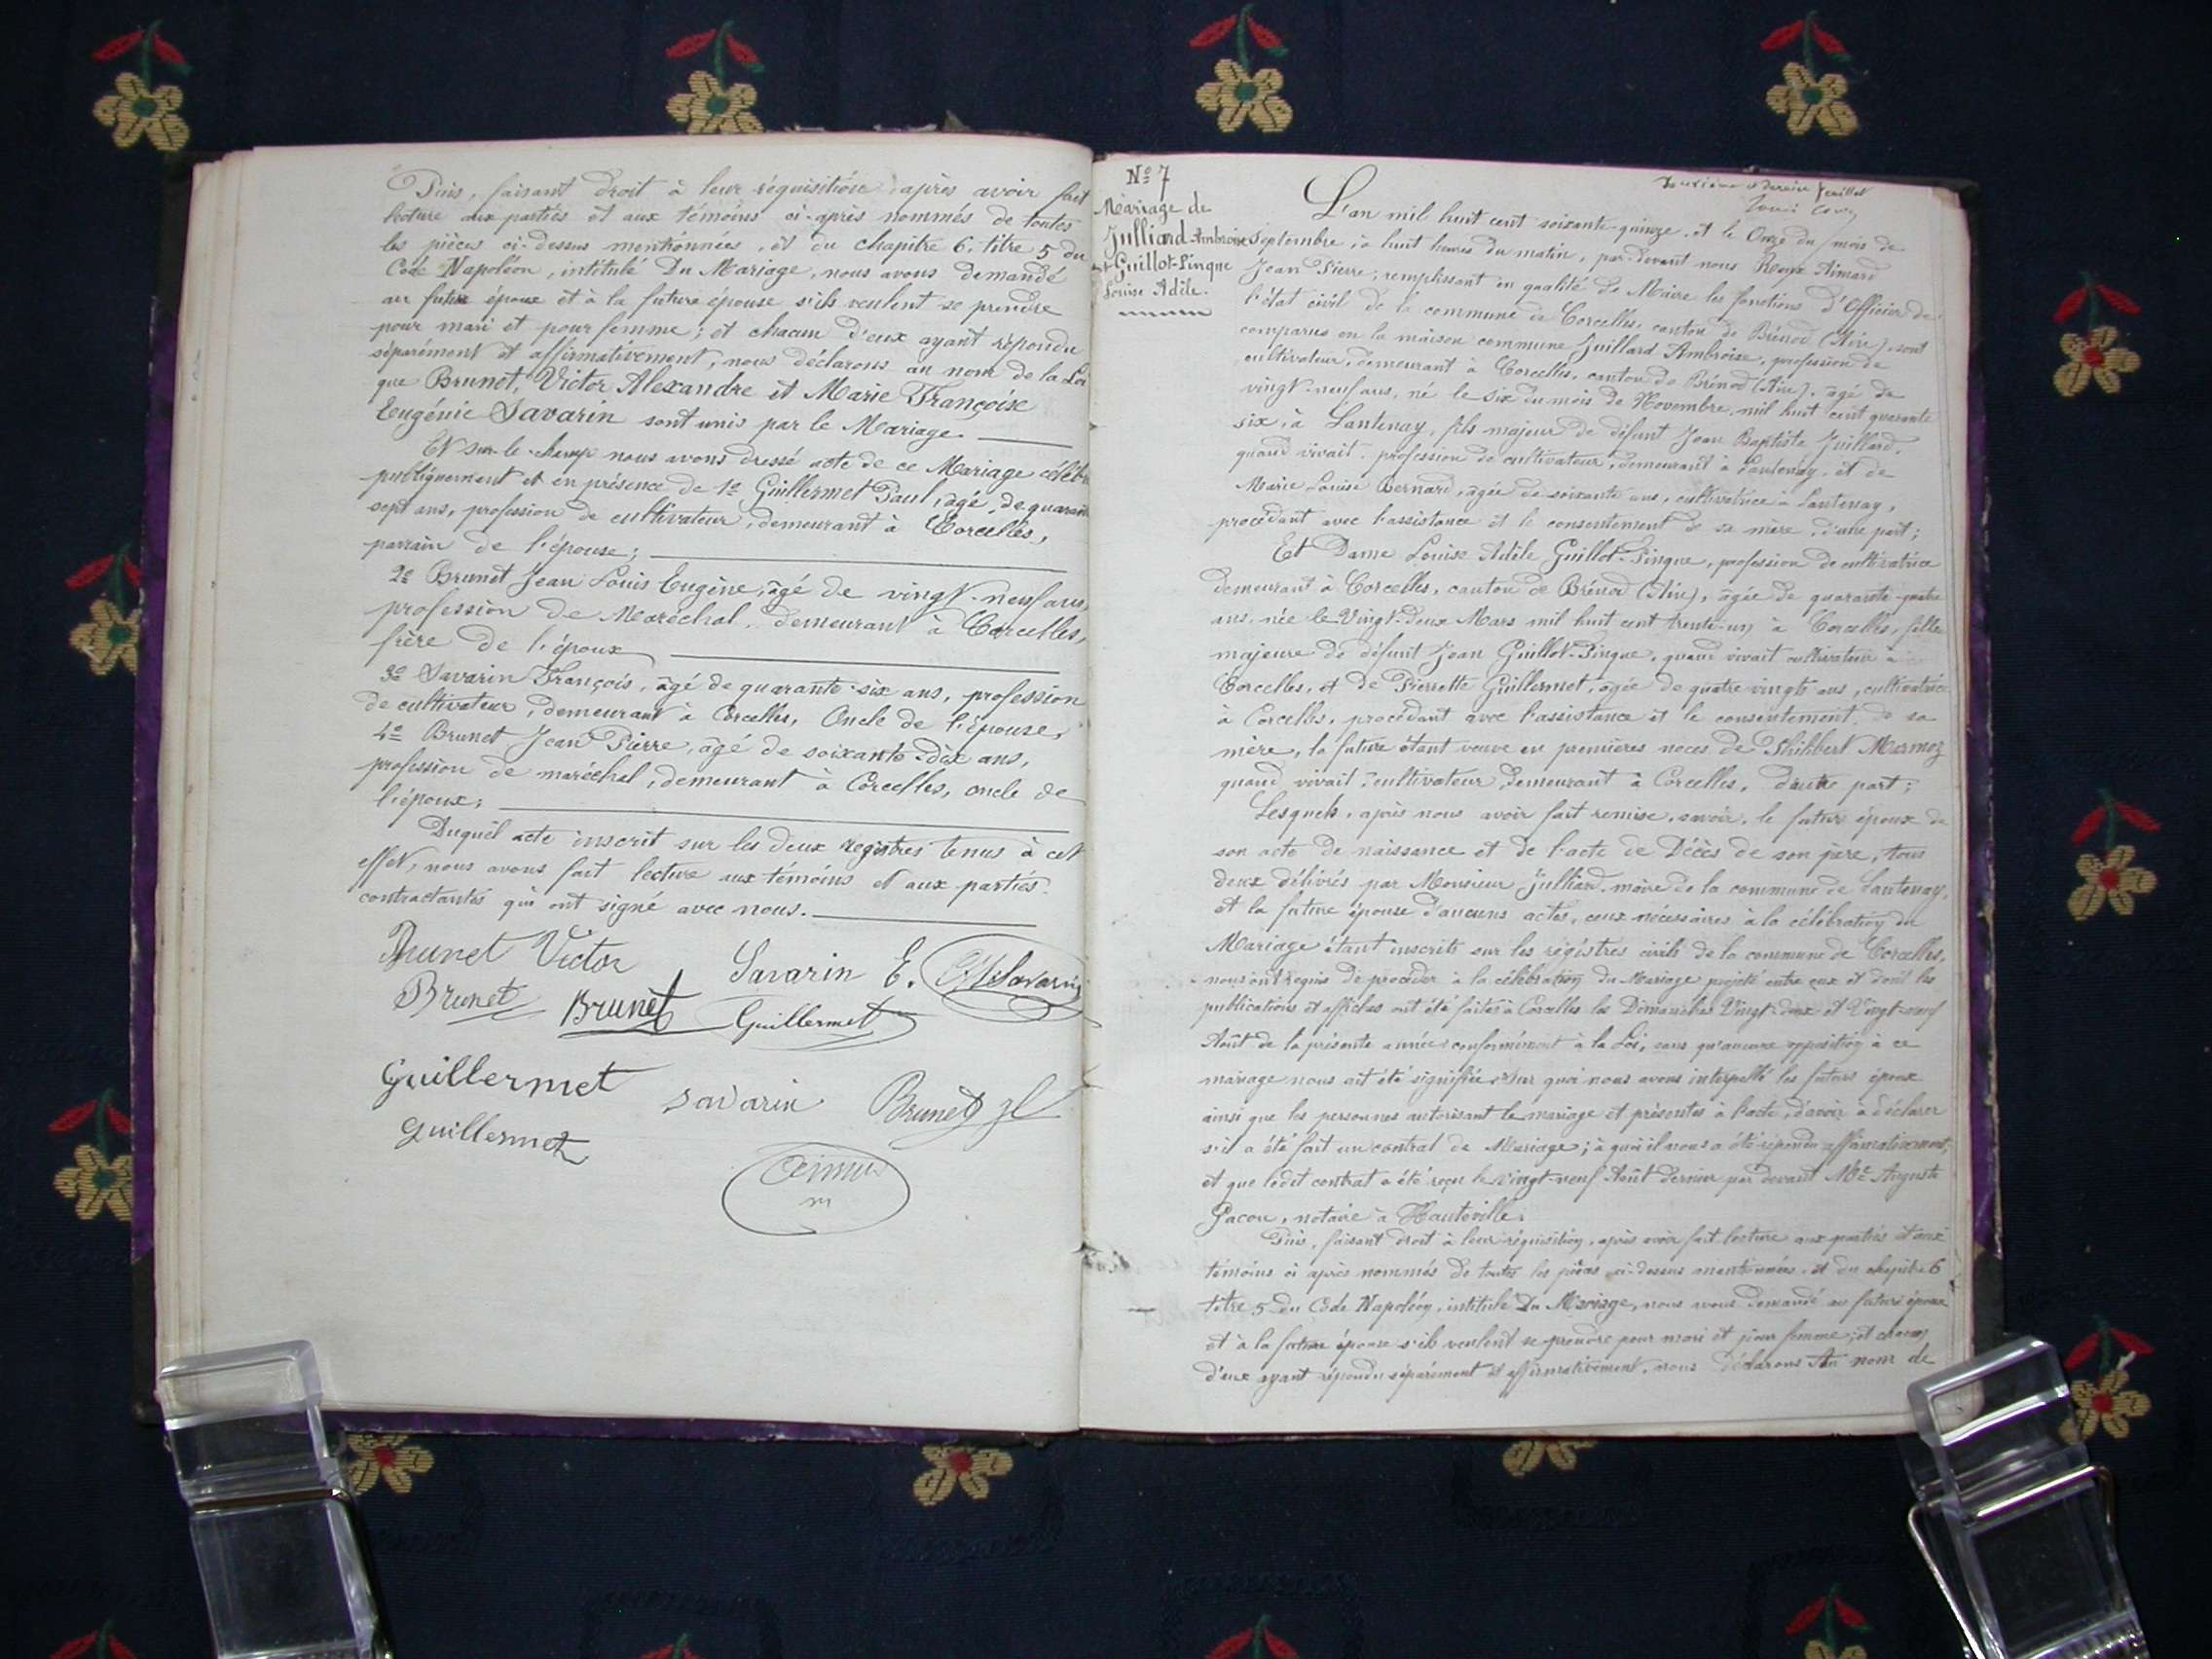 Puis, faisant droit à leur réquisition, après avoir fait
lecture aux parties et aux témoins ci-après nommés de toutes
les pièces ci-dessus mentionnées, et du chapitre 6, titre 5 du
Code Napoléon, intitulé Du Mariage, nous avons demandé
au futur époux et à la future épouse s'ils veulent se prendre
pour mari et pour femme ; et chacun d'eux ayant répondu
séparément et affirmativement, nous déclarons au nom de la Loi
que Brunet, Victor Alexandre et Marie Françoise
Eugénie Savarin sont unis par le Mariage.
Et sur-le-champ nous avons dressé acte de ce Mariage célébré
publiquement et en présence de 1º Guillermet Paul, âgé de quarante
sept ans, profession de cultivateur, demeurant à Corcelles,
parrain de l'épouse ;
2º Brunet Jean Louis Eugène, âgé de vingt-neuf ans,
profession de Maréchal, demeurant à Corcelles,
frère de l'époux
3º Savarin François, âgé de quarante-six ans, profession
de cultivateur, demeurant à Corcelles, Oncle de l'épouse,
4º Brunet Jean Pierre, âgé de soixante-dix ans,
profession de maréchal, demeurant à Corcelles, oncle de
l'époux ;
Duquel acte inscrit sur les deux registres tenus à cet
effet, nous avons fait lecture aux témoins et aux parties
contractantes qui ont signé avec nous.
Brunet Victor
Savarin E. Savarin
Brunet Brunet Guillermet
Guillermet
Savarin Brunet
Guillermet
Nº 7
Mariage de
Julliard Ambroise
et Guillot-Pingue
Louise Adèle.
Douzième et dernier feuillet
L'an mil huit cent soixante-quinze, et le Onze du mois de
Septembre, à huit heures du matin, par-devant nous Reoux Aimard
Jean Pierre, remplissant en qualité de Maire les fonctions d'Officier de
l'état civil de la commune de Corcelles, canton de Brénod (Ain), sont
comparus en la maison commune Juillard Ambroise, profession de
cultivateur, demeurant à Corcelles, canton de Brénod (Ain), âgé de
vingt-neuf ans, né le six du mois de Novembre, mil huit cent quarante
six, à Lantenay, fils majeur de défunt Jean Baptiste Juillard,
quand vivait profession de cultivateur, demeurant à Lantenay, et de
Marie Louise Bernard, âgée de soixante ans, cultivatrice à Lantenay,
procédant avec l'assistance et le consentement de sa mère, d'une part ;
Et Dame Louise Adèle Guillot-Pingue, profession de cultivatrice
demeurant à Corcelles, canton de Brénod (Ain), âgée de quarante-quatre
ans, née le Vingt-Deux Mars mil huit cent trente-un à Corcelles, fille
majeure de défunt Jean Guillot-Pingue, quand vivait cultivateur à
Corcelles, et de Pierrette Guillermet, âgée de quatre vingts ans, cultivatrice
à Corcelles, procédant avec l'assistance et le consentement de sa
mère, la future étant veuve en premières noces de Philibert Marmoz
quand vivait cultivateur demeurant à Corcelles, d'autre part ;
Lesquels, après nous avoir fait remise, savoir, le futur époux de
son acte de naissance et de l'acte de Décès de son père, tous
deux délivrés par Monsieur Julliard, maire de la commune de Lantenay,
et la future épouse d'aucuns actes, ceux nécessaires à la célébration du
Mariage étant inscrits sur les régistres civils de la commune de Corcelles,
nous ont requis de procéder à la célébration du Mariage projeté entre eux et dont les
publications et affiches ont été faites à Corcelles les Dimanches Vingt-deux et Vingt-neuf
Août de la présente année conformément à la Loi, sans qu'aucune opposition à ce
mariage nous ait été signifiée. Sur quoi nous avons interpellé les futurs époux
ainsi que les personnes autorisant le mariage et présentes à l'acte, d'avoir à déclarer
s'il a été fait un contrat de Mariage ; à quoi il nous a été répondu affirmativement,
et que ledit contrat a été reçu le vingt-neuf Août dernier par devant Me Auguste
Gacon, notaire à Hauteville.
Puis, faisant droit à leur réquisition, après avoir fait lecture aux parties et aux
témoins ci après nommés de toutes les pièces ci-dessus mentionnées, et du chapitre 6
titre 5 du Code Napoléon, intitulé Du Mariage, nous avons demandé au futur époux
et à la future épouse s'ils veulent se prendre pour mari et pour femme ; et chacun
d'eux ayant répondu séparément et affirmativement, nous déclarons Au nom de